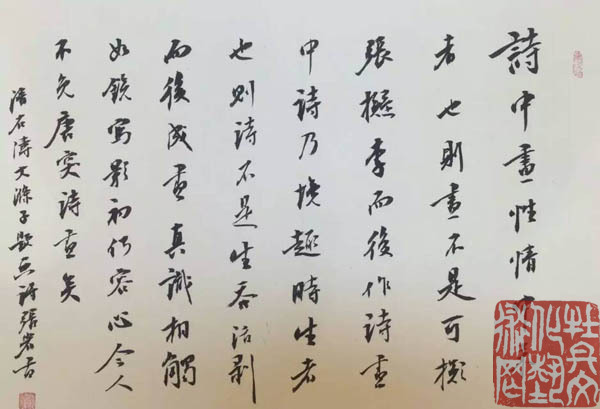 詩中畫性情中
者也則畫不是可擬
張擬李而後作詩畫
中詩乃境趣時生者
也則詩不是生吞活剥
而後成畫真識相觸
如鏡寫影初何容心今人
不免唐突詩畫矣
石濤大滌子題畫詩張